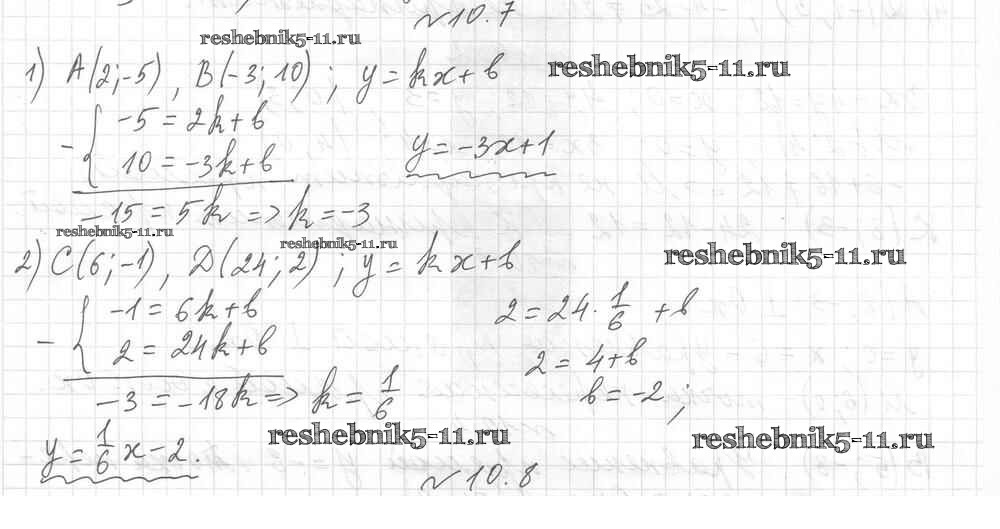 № 10.7
reshebnik5-11.ru
1) A(2;-5), B(-3;10); y = kx+b
reshebnik5-11.ru
-5 = 2k+b
- {
10 = -3k+b
y = -3x+1
-15 = 5k => k = -3
reshebnik5-11.ru
reshebnik5-11.ru
2) C(6;-1), D(24;2); y = kx+b
reshebnik5-11.ru
-1 = 6k+b
- {
2 = 24k+b
-3 = -18k => k = 1/6
2 = 24·1/6 + b
2 = 4+b
b = -2;
y = 1/6 x - 2.
reshebnik5-11.ru
reshebnik5-11.ru
№ 10.8